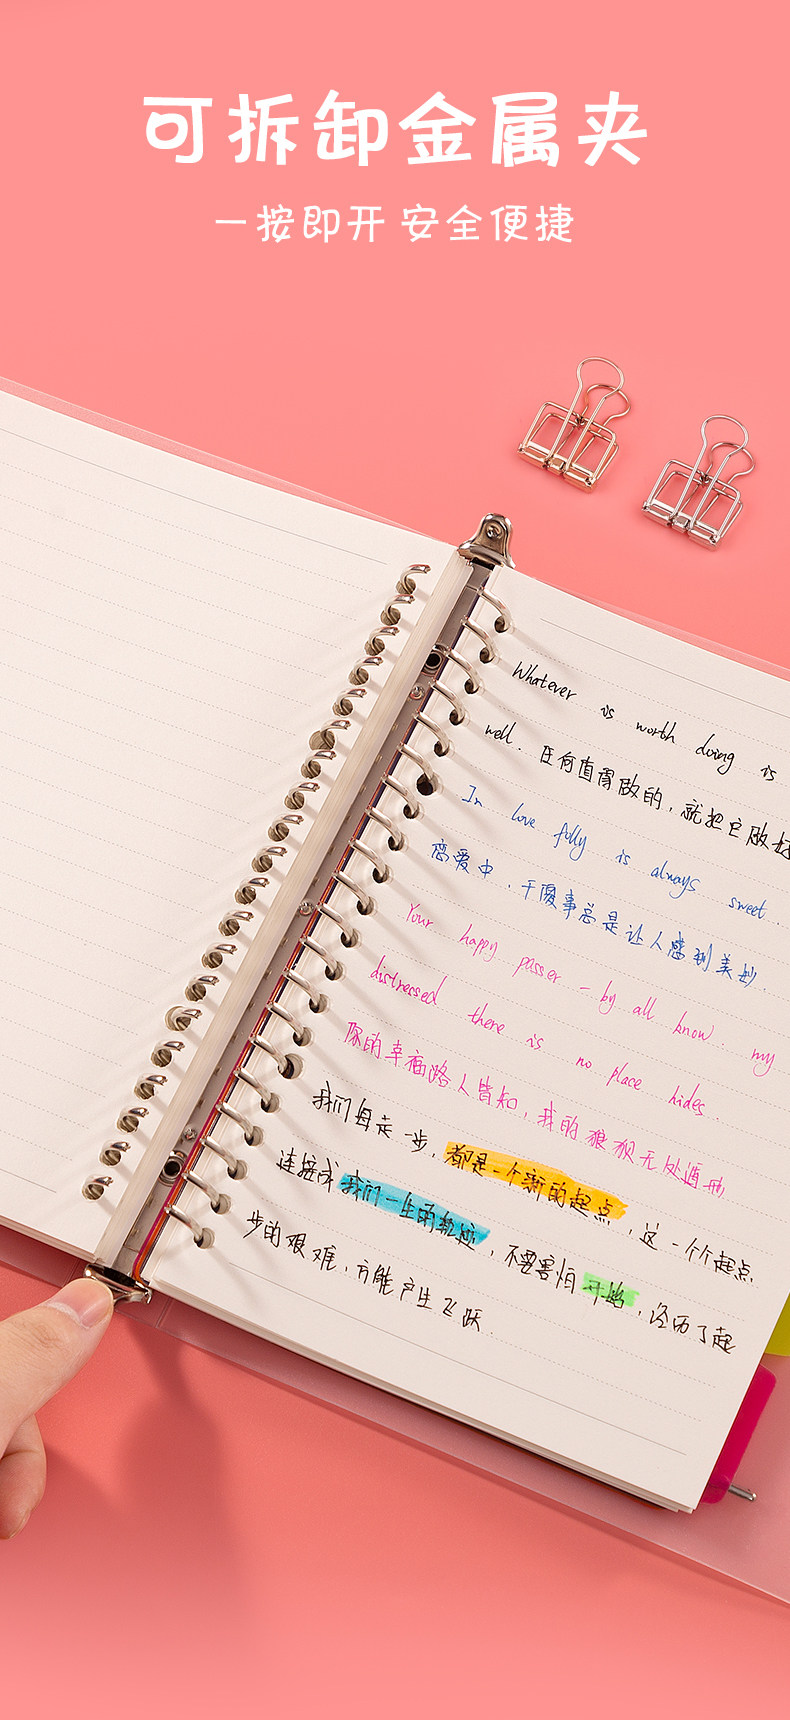 可拆卸金属夹
一按即开 安全便捷
Whatever is worth doing is
well. 任何值得做的，就把它做好
In love folly is always sweet.
恋爱中，干傻事总是让人感到美妙.
Your happy passer - by all know my
distressed there is no place hides.
你的幸福路人皆知，我的狼狈无处遁形
我们每走一步，都是一个新的起点，这一个个起点
连接成我们一生的轨迹，不要害怕开始，经历了起
步的艰难，方能产生飞跃.